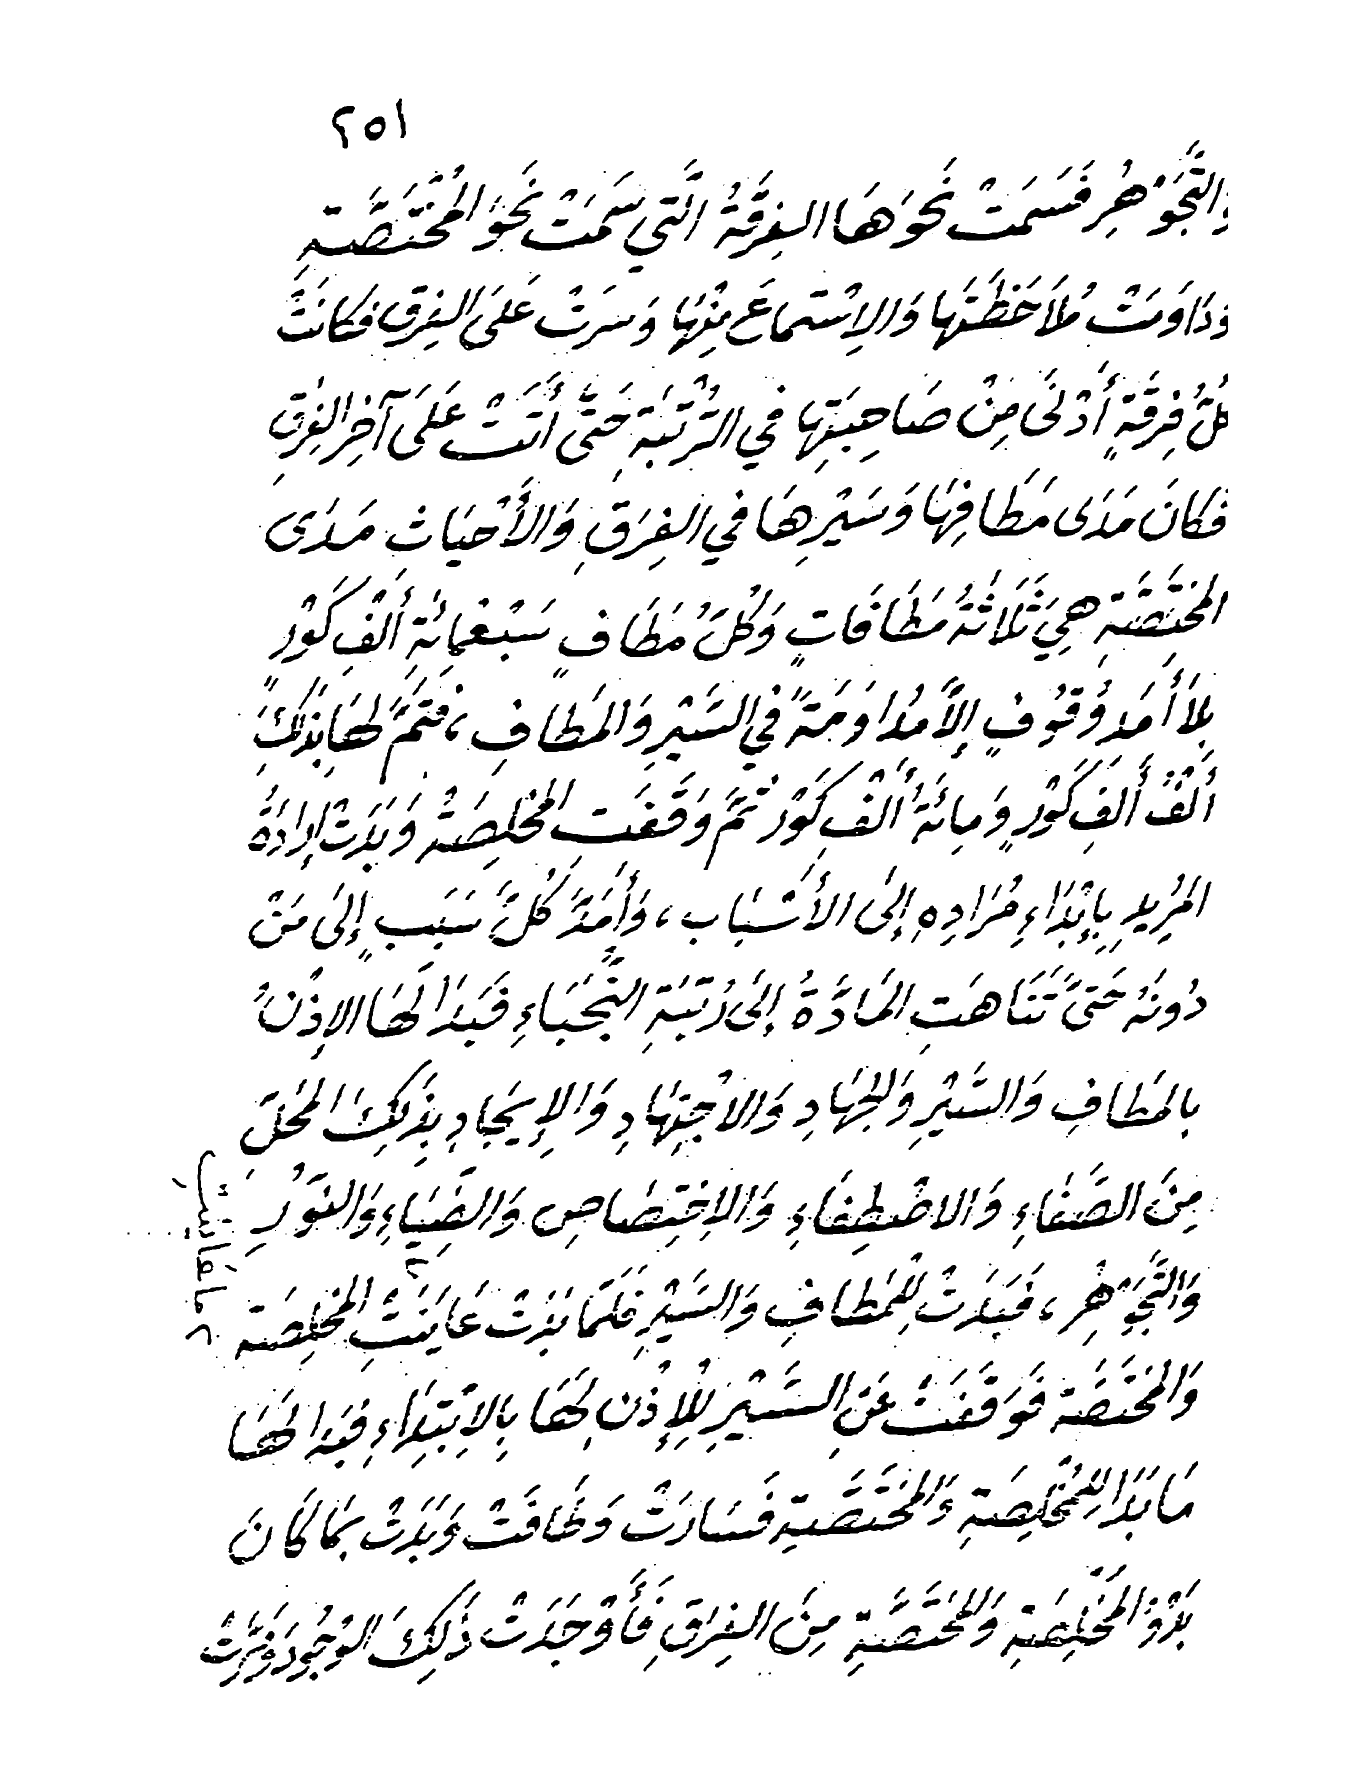 ٢٥١
وَالتَّجَوْهُرِ فَسَمَتْ نَحْوَهَا الفِرْقَةُ الَّتِي سَمَتْ نَحْوَ المُخْتَصَّةِ
وَدَاوَمَتْ مُلاَحَظَتَهَا وَالاِسْتِمَاعَ مِنْهَا وَسَرَتْ عَلَى الفِرَقِ فَكَانَتْ
كُلُّ فِرْقَةٍ أَدْنَى مِنْ صَاحِبَتِهَا فِي الرُّتْبَةِ حَتَّى أَتَتْ عَلَى آخِرِ الفِرَقِ
فَكَانَ مَدَى مَطَافِهَا وَسَيْرِهَا فِي الفِرَقِ وَالأَحْيَاثِ مَدَى
المُخْتَصَّةِ هِيَ ثَلَاثَةُ مَطَافَاتٍ وَكُلُّ مَطَافٍ سَبْعُمِائَةِ أَلْفِ كَوْرٍ
بِلاَ أَمَدِ وُقُوفٍ إِلاَّ مُدَاوَمَةً فِي السَّيْرِ وَالمَطَافِ، فَتَمَّ لَهَا بِذَلِكَ
أَلْفُ أَلْفِ كَوْرٍ وَمِائَةُ أَلْفِ كَوْرٍ ثُمَّ وَقَفَتِ المُخْلِصَةُ وَبَدَتْ إِرَادَةُ
المُرِيدِ بِإِبْدَاءِ مُرَادِهِ إِلَى الأَسْبَابِ، وَأَمَدَّ كُلُّ سَبَبٍ إِلَى مَنْ
دُونَهُ حَتَّى تَنَاهَتِ المَادَّةُ إِلَى رُتْبَةِ النُّجَبَاءِ فَبَدَا لَهَا الإِذْنُ
بِالمَطَافِ وَالسَّيْرِ وَالجِهَادِ وَالاجْتِهَادِ وَالإِيجَادِ بِذَلِكَ المَحَلِّ
مِنَ الصَّفَاءِ وَالاصْطِفَاءِ وَالاِخْتِصَاصِ وَالضِّيَاءِ وَالنُّورِ
وَالتَّجَوْهُرِ، فَبَدَتْ لِلْمَطَافِ وَالسَّيْرِ فَلَمَّا بَدَتْ عَايَنَتِ المُخْلِصَةَ
وَالمُخْتَصَّةَ فَوَقَفَتْ عَنِ السَّيْرِ لِلإِذْنِ لَهَا بِالاِبْتِدَاءِ فَبَدَا لَهَا
مَا بَدَا لِلْمُخْلِصَةِ وَالمُخْتَصَّةِ فَسَارَتْ وَطَافَتْ وَبَدَتْ بِمَا كَانَ
بَدْؤُ المُخْلِصَةِ وَالمُخْتَصَّةِ مِنَ الفِرَقِ فَأَوْجَدَتْ ذَلِكَ الوُجُودَ